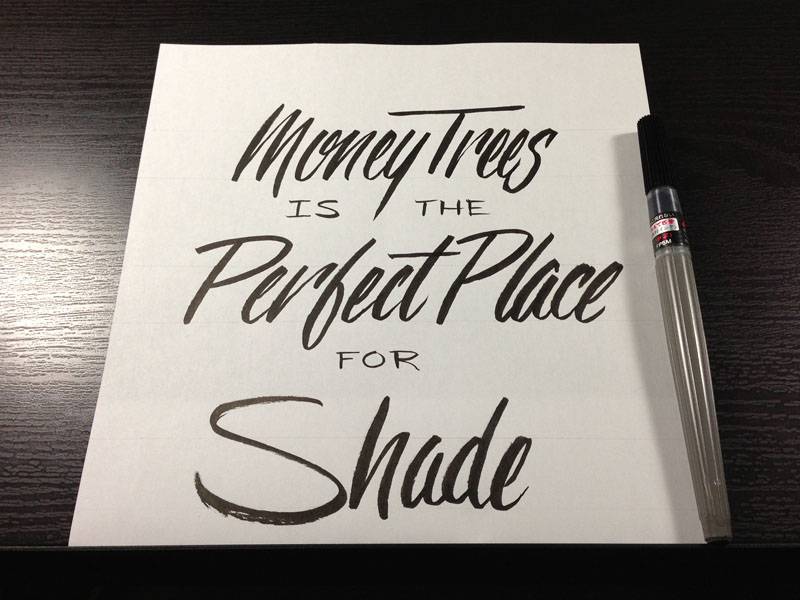 Money Trees
IS THE
Perfect Place
FOR
Shade